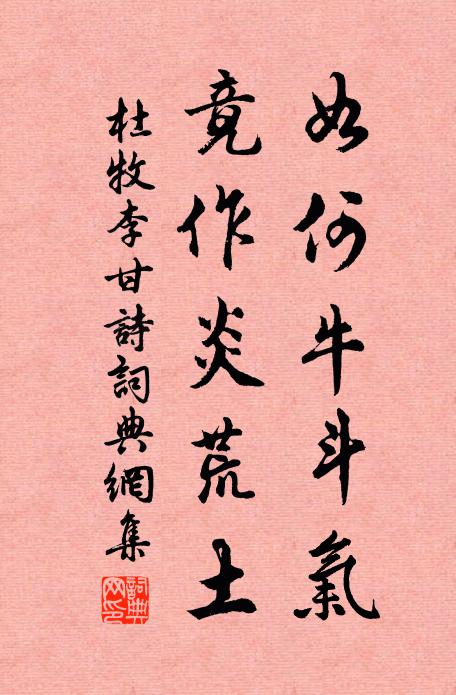 如何牛斗氣
竟作炎荒土
杜牧李甘詩詞典網集
詞典網印